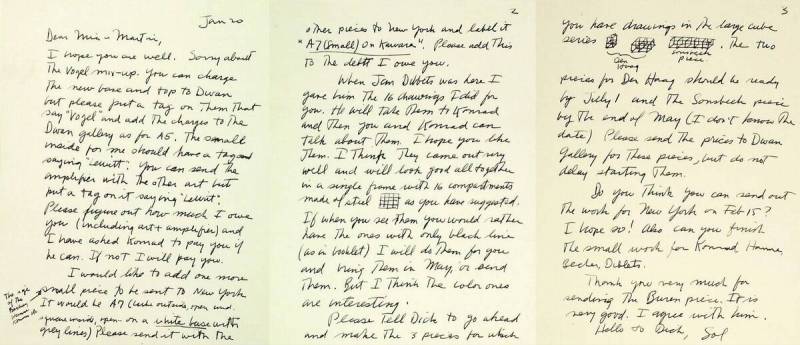 Jan 20
Dear Mia + Martin,
I hope you are well. Sorry about
the Vogel mix-up. You can charge
the new base and top to Dwan
but please put a tag on them that
say "Vogel and add the charges to the
Dwan gallery as for A5. The small
inside for me should have a tag
saying "Lewitt". You can send the
amplifier with the other art but
put a tag on it saying "Lewitt".
Please figure out how much I owe
you (including art + amplifier) and
I have asked Konrad to pay you if
he can. If not I will pay you.
I would like to add one more
small piece to be sent to New York
The size
of the
It would be A7 (cube outside, open and
square inside, open - on a white base with
grey lines) Please send it with the
2
other pieces to New York and label it
"A7 (Small) On Kawara". Please add this
to the debt I owe you.
When Jan Dibbets was here I
gave him the 16 drawings I did for
you. He will take them to Konrad
and then you and Konrad can
talk about them. I hope you like
them. I think they came out very
well and will look good all together
in a single frame with 16 compartments
made of steel as you have suggested.
If when you see them you would rather
have the ones with only black line
(as in booklet) I will do them for you
and bring them in May, or send
them. But I think the color ones
are interesting.
Please tell Dick to go ahead
and make the 3 pieces for which
3
you have drawings in the large cube
series . The two
Den
Haag
Sonsbeek
piece.
pieces for Den Haag should be ready
by July 1 and the Sonsbeek piece
by the end of May (I don't know the
date) Please send the prices to Dwan
Gallery for these pieces, but do not
delay starting them.
Do you think you can send out
the work for New York on Feb 15?
I hope so! Also can you finish
the small work for Konrad, Hanne,
Becher, Dibbets.
Thank you very much for
sending the Buren piece. It is
very good. I agree with him.
Hello to Dick, Sol